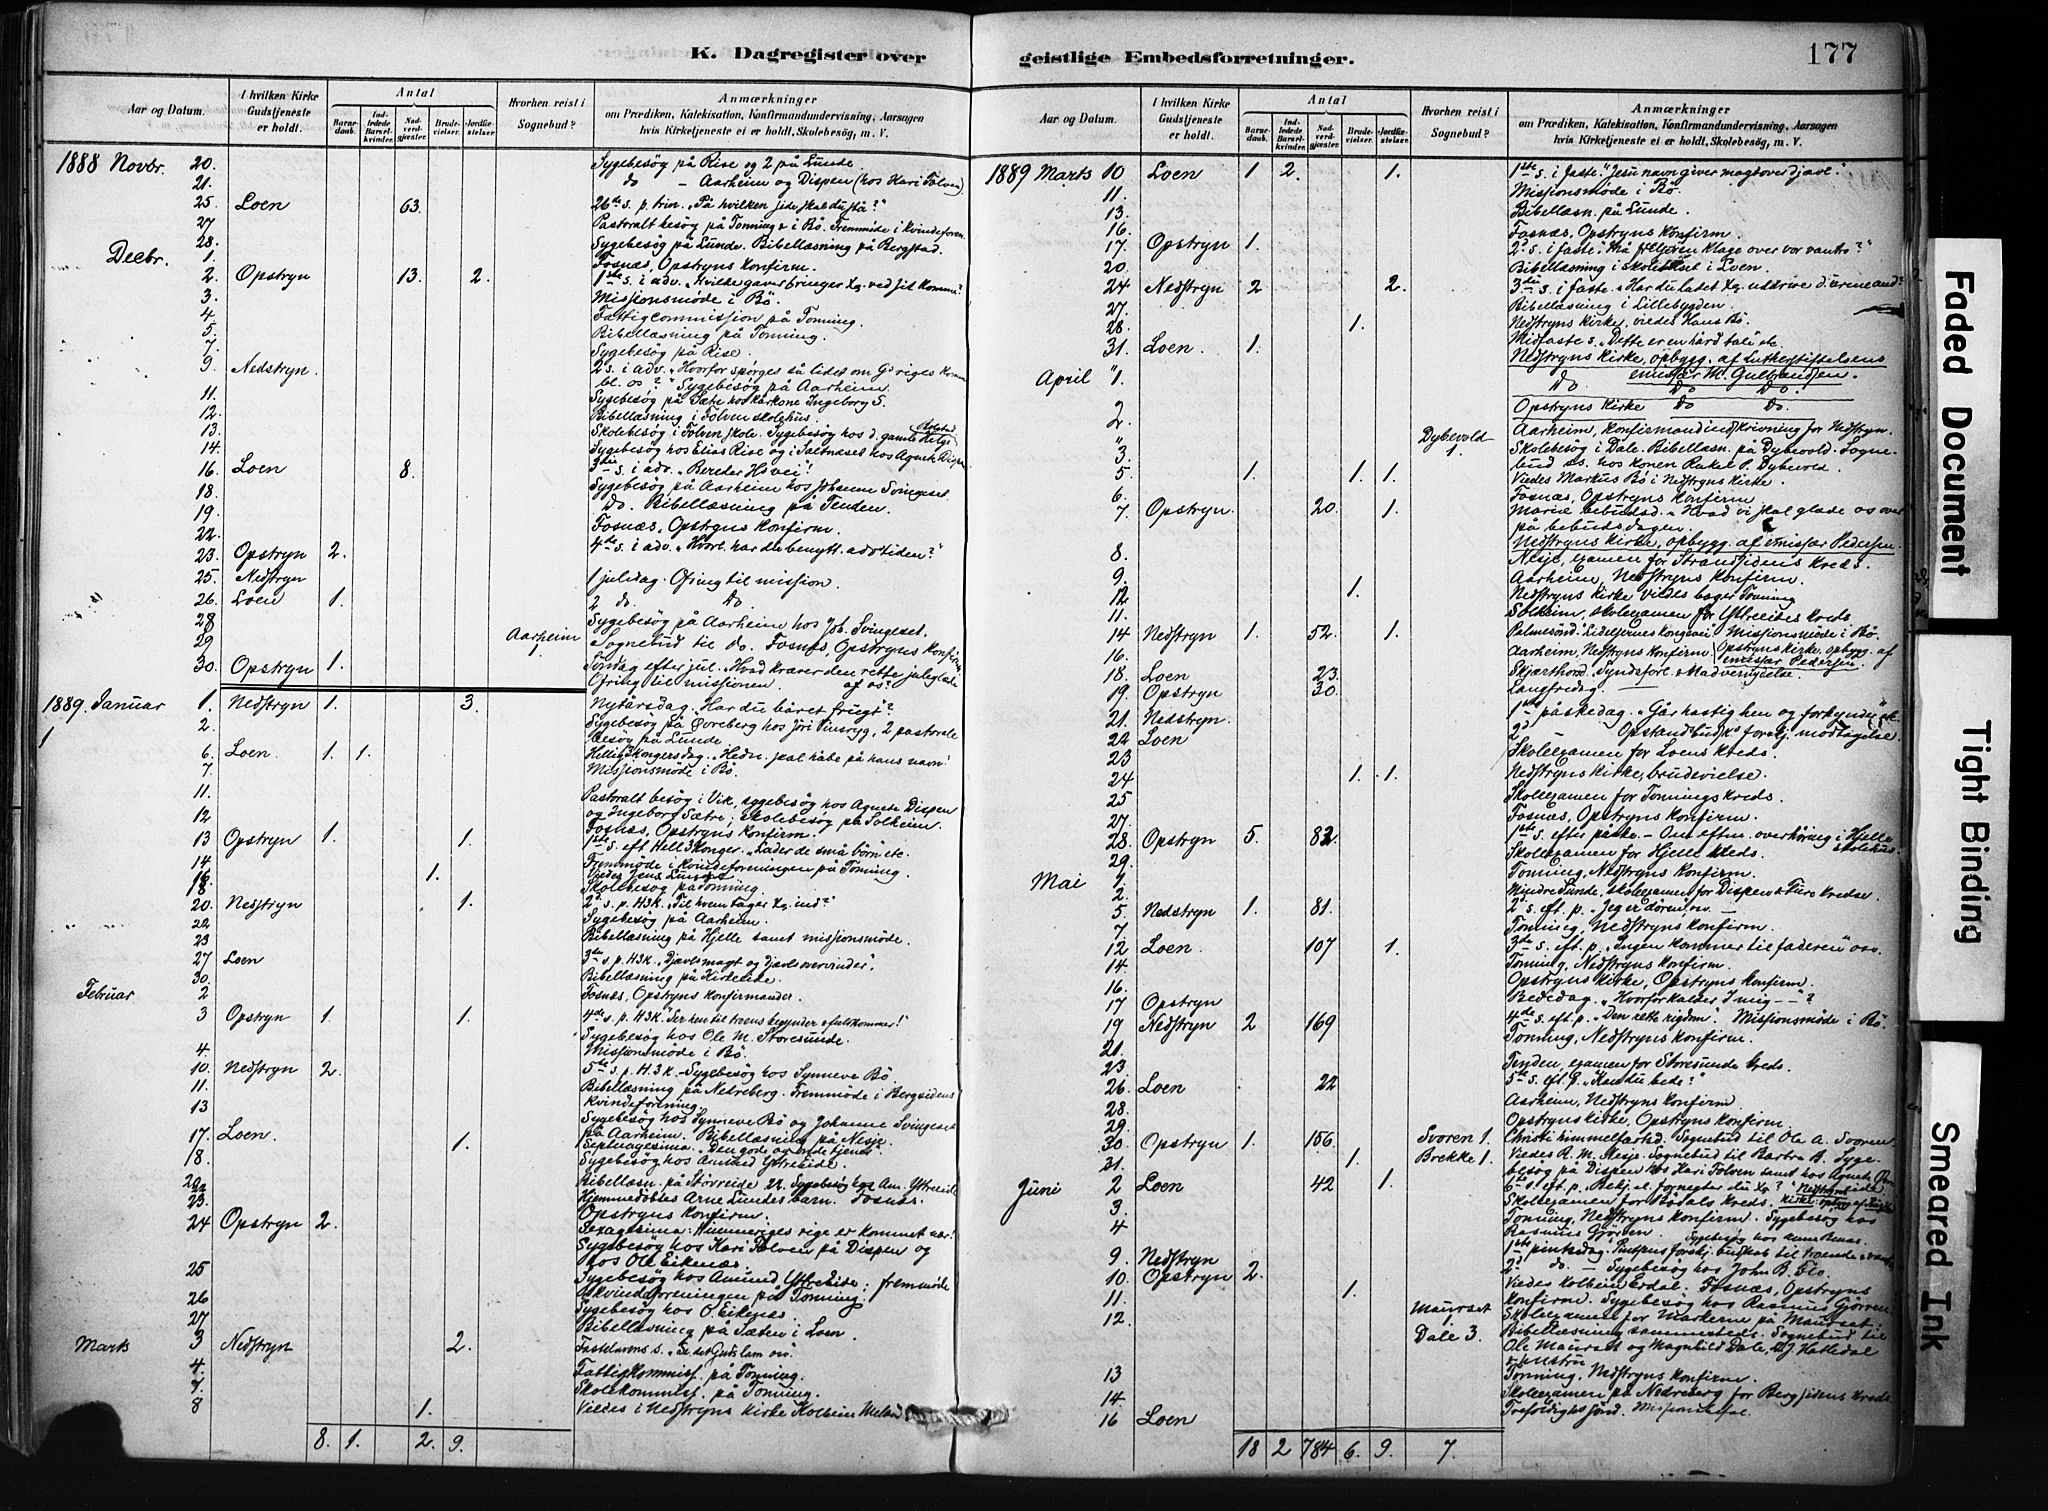 K. Dagregister over
Aar og Datum.
I hvilken Kirke Gudstjeneste er holdt.
Antal
Barnedaab.
Indledede Barselkvinder.
Nadverdgjester.
Brudevielser.
Jordfæstelser.
Hvorhen reist i Sognebud?
Anmærkninger
om Prædiken, Katekisation, Konfirmandundervisning, Aarsagen
hvis Kirketjeneste ei er holdt, Skolebesøg, m. V.
1888 Novbr. 20. Sygebesøg på Rise og 2 på Lunde.
21. do - Aarheim og Dispen (hos Kari Tolven).
25. Loen 63. 26de s. p. trin. "På hvilken side skal du stå?"
27 Pastoralt besøg på Tonning & i Bö. Fremmöde i kvindeforen.
28. Sygebesøg på Lunde. Bibellæsning på Bergstad.
Decbr. 1. Fosnæs, Opstryns Konfirm.
2. Opstryn 13. 2. 1ste s. i adv. "Hvilke gaver bringer Xs. ved sit komme?"
3. Missionsmöde i Bö.
4. Fattigcommission på Tonning.
5. Bibellæsning på Tonning.
7. Sygebesøg på Rise.
9. Nedstryn. 2d s. i adv. "Hvorfor spörges så lidet om Gs riges komme
bl. os?" Sygebesøg på Aarheim.
11. Sygebesøg på Sæte hos kårkone Ingeborg S.
12. Bibellæsning i Tolven skolehus.
13. Skolebesøg i Tolven skole. Sygebesøg hos d. gamle Helge
14. Sygebesøg hos Elias Rise og i Saltnæset hos Agnete Dispen
16. Loen 8. 3die s. i adv. "Bereder Hs vei!"
18. Sygebesøg på Aarheim hos Johanne Svingeset.
19. Do. Bibellæsning på Tenden.
22. Fosnæs, Opstryns Konfirm.
23. Opstryn 2. 4de s. i adv. "Hvorl. har du benytt. advtiden?"
25. Nedstryn 1 juledag. Ofring til mission.
26. Loen 1. 2 do. Do.
28 Sygebesøg på Aarheim hos Joh. Svingeset.
29 Aarheim 1 Sognebud til do. Fosnæs, Opstryns Konfirm.
30. Opstryn 1. Söndag efter jul. "Hvad kræver den rette juleglæde
Ofring til missionen. af os?"
1889. Januar 1. Nedstryn 1. 3. Nytårsdag. "Har du båret frugt"?
2. Sygebesøg på Övreberg hos Jöri Vinsryg, 2 pastorale
besøg på Lunde
6. Loen. 1. 1. Hellig 3 kongersdag. "Hedn. skal håbe på hans navn"
7. Missionsmöde i Bö.
11. Pastoralt besøg i Vik, sygebesøg hos Agnete Dispen
12 og Ingeborg Sætre; skolebesøg på Solheim.
Fosnæs, Opstryns Konfirm.
13 Opstryn 1. 1. 1ste s. eft. Hell 3 Konger. "Lader de små börn" etc.
14. Fremmöde i kvindeforeningen på Tonning.
16. 1. Viedes Jens Lunde
18. Skolebesøg på Tonning.
20. Nedstryn 1. 2d s. p. H3K. "Til hvem tager Xs. ind?"
22 Sygebesøg på Aarheim.
23 Bibellæsning på Hjelle samt missionsmöde.
27 Loen 3die s. p. H3K. "Djævlemagt og djævleovervinder".
30. Bibellæsning på Kirkeeide.
Februar 2 Fosnæs, Opstryns Konfirmander.
3 Opstryn 1. 1. 4de s. p. H3K. "Ser hen til troens begynder & fuldkommer!"
Sygebesøg hos Ole M. Storesunde.
4. Missionsmöde i Bö.
10. Nedstryn 2. 5te s. p. H.3K. - Sygebesøg hos Synneve Bö
11. Bibellæsning på Nedreberg. Fremmöde i Bergsidens
13 Kvindeforening.
Sygebesøg hos Synneve Bö og Johanne Svingeset
17. Loen. 1. på Aarheim. Bibellæsning på Nesje.
Septuagesima. "Den gode og onde tjener"
18. Sygebesøg hos Amund Yttreeide.
22 Bibellæsn. på Storreide 22. Sygebesøg hos Am. Yttreeide
23. Hjemmedöbtes Arne Lundes barn. Fosnæs.
Opstryns Konfirm.
24 Opstryn 2. Sexagesima: Himmeriges rige er kommet nær!
Sygebesøg hos Kari Tolven på Dispen og
hos Ole Eikenæs.
25 Sygebesøg hos Amund Yttreeide; fremmöde
26 i kvindeforeningen på Tonning;
Sygebesøg hos O. Eikenæs.
27 Bibellæsning på Sæten i Loen.
Marts 3 Nedstryn 2. Fastelavens s. "Se det Guds lam osv."
4. Fattigkommiss. på Tonning.
7. Skolekommiss. på Tonning.
8 1. Viedes i Nedstryns Kirke Kolbein
8. 1. 2. 9.
geistlige Embedsforretninger.
177
Aar og Datum.
I hvilken Kirke Gudstjeneste er holdt.
Antal
Barnedaab.
Indledede Barselkvinder.
Nadverdgjester.
Brudevielser.
Jordfæstelser.
Hvorhen reist i Sognebud?
Anmærkninger
om Prædiken, Katekisation, Konfirmandundervisning, Aarsagen
hvis Kirketjeneste ei er holdt, Skolebesøg, m. V.
1889 Marts 10 Loen 1 2. 1. 1ste s. i faste. "Jesu navn giver magt over djævl."
11. Missionsmöde i Bö.
13. Bibellæsn. på Lunde.
16. Fosnæs, Opstryns Konfirm.
17. Opstryn 1. 2d s. i faste. "Må frelseren klage over vor vantro?"
20. Bibellæsning i skolehuset i Loen.
24 Nedstryn 2 2. 3die s. i faste. "Har du ladet Xs. uddrive d. urene ånd"
27. Bibellæsning i Lillebygden.
28. 1. Nedstryns Kirke, viedes Hans Bö.
31. Loen. 1. Midfaste s. "Dette er en hård tale" etc.
Nedstryns Kirke, opbygg. af Lutherstiftelsens
April 1. emissær M. Gulbrandsen.
Do. Do Do.
2 Opstryns Kirke Do Do.
" Aarheim, Konfirmandindskrivning for Nedstryn.
3. Dybevold 1 Skolebesøg i Dale. Bibellæsn. på Dybevold. Sogne-
bud ds. hos konen Rakel P. Dybevold.
5. 1. 1. 1. Viedes Markus Bö i Nedstryns Kirke.
6. Fosnæs, Opstryns Konfirm.
7. Opstryn. 20. 1. Mariæ bebudelsd. "Hvad vi skal glæde os over
på bebudsdagen.
8. Nedstryns Kirke, opbygg. af emissær Pedersen.
Nesje, examen for Strandsidens Kreds.
9. Aarheim, Nedstryns Konfirm.
12. 1. Nedstryns Kirke viedes Tonning
11. Solheim, skoleexamen for Yttreeides kreds.
14 Nedstryn 1. 52. 1. Palmesönd. "Lidelsernes Kongevei" Missionsmöde i Bö.
16. Aarheim, Nedstryns Konfirm. Opstryns Kirke, opbyg. af
emissær Pedersen.
18. Loen 23. Skjærthorsd. Syndsforl. & Nadvernydelse.
19. Opstryn 30. Langfredag.
21. Nedstryn. 1ste påskedag. "Går hastig hen og forkynder" etc.
22 Loen 2d - Opstandbudsk. & forskj. modtagelse.
23 Skoleexamen for Loens kreds.
24 1. 1. Nedstryns Kirke, brudevielse.
25 Skoleexamen for Tonnings kreds.
27. Fosnæs, Opstryns Konfirm.
28. Opstryn 5. 82. 1ste s. efter påske - Om eftm. overhöring i Hjelle
skolehus.
29. Skoleexamen for Hjelle kreds.
Mai 1 Tonning, Nedstryns Konfirm.
2. Mindre Sunde, skoleexamen for Dispen & Furo kredse.
5. Nedstryn 1. 81. 2d s. eft. p. "Jeg er dören, osv. -
7. Tonning, Nedstryns Konfirm.
12 Loen. 107 1. 3die s. eft. p. "Ingen kommer til faderen" osv.
14. Tonning, Nedstryns Konfirm.
16. Opstryns Kirke, Opstryns Konfirm.
17 Opstryn Bededag. "Hvorfor kalder I mig - - "?
19 Nedstryn 2 169 4de s. eft. p. "Den rette rigdom". Missionsmöde i Bö.
21. Tonning, Nedstryns Konfirm.
23 Tenden, examen for Storesunde kreds.
26. Loen 22 5te s. eft. p. "Kan du bede?"
28. Aarheim, Nedstryns Konfirm.
29. Opstryns Kirke, Opstryns Konfirm.
30 Opstryn 1. 156. Svoren 1. Christi himmelfartsd. Sognebud til Ole A. Svoren.
31. 1. Brekke 1. Viedes R. M. Nesje. Sognebud til Barbra B. Syge-
besøg på Dispen hos Kari Tolven samt hos Agnete
Juni 2 Loen. 42 1. 6te s. eft. p. Bekj. el. fornegter du Xs.?
3. Skoleexamen for Bödals Kreds.
4 Tonning, Nedstryns Konfirm. Sygebesøg hos
Rasmus Gjörven.
9. Nedstryn 1ste pintsdag.
10. Opstryn 2. 2d do - Sygebesøg hos John B. Flo.
11. 1. Viedes Kolbein Erdal. Fosnæs, Opstryns
Konfirm. Sygebesøg hos Rasmus Gjörven.
12. Maurset 1. Skoleexamen for Markerne på Maurset.
Dale 3. Bibellæsning sammesteds. Sognebud til
Ole Maurset og Magnhild Dale, J. Hattedal
& hustru
13 Tonning, Nedstryns Konfirm.
14. Skoleexamen på Nedreberg for Bergsidens kreds.
16 Loen Trefoldighedssönd.
18 2 784 6. 9. 7.
Faded Document
Tight Binding
Smeared Ink